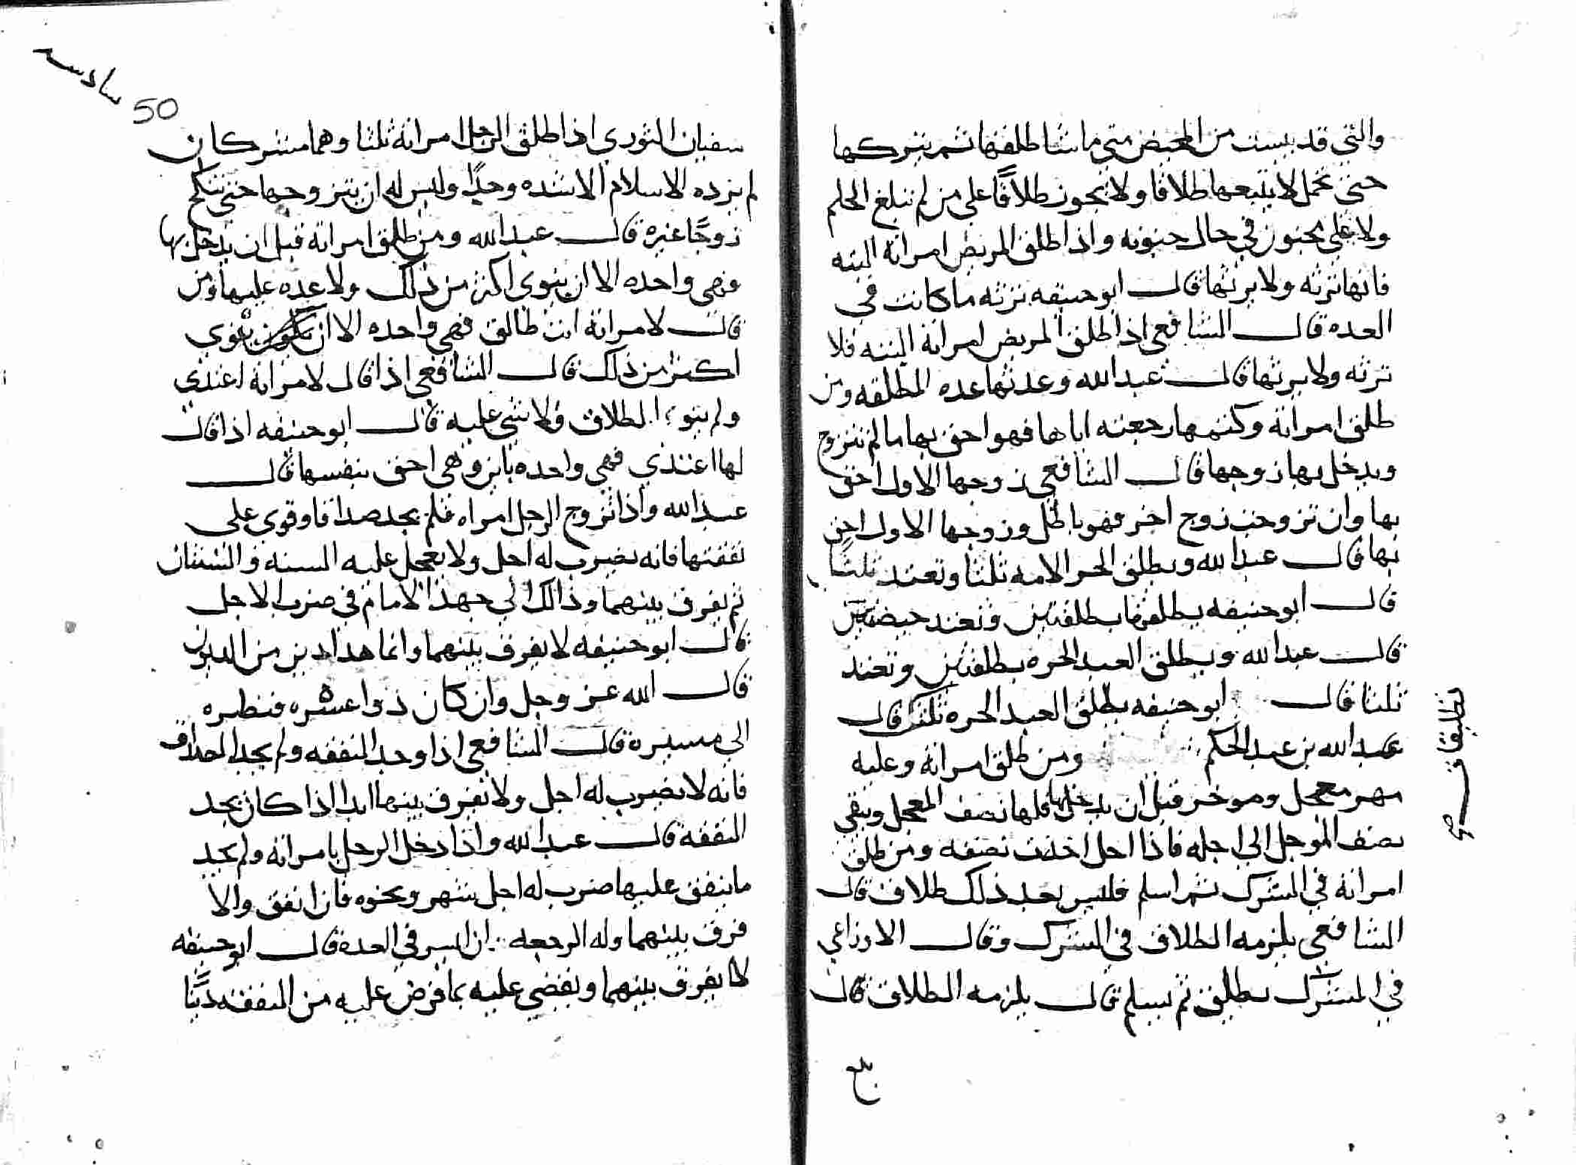 والتي قد يبست من المحيض متى ما شا طلقها ثم يتركها
حتى تحمل لا يتبعها طلاقا ولا يجوز طلاقا على من لم تبلغ الحلم
ولا على مجنون في حال جنونه واذا طلق المريض امراته البته
فانها ترثه ولا يرثها قال ابو حنيفه ترثه ما كانت في
العده قال الشافعي اذا طلق المريض امراته البته فلا
ترثه ولا يرثها قال عبد الله وعدتها عده المطلقه ومن
طلق امراته وكتمها رجعته اياها فهو احق بها ما لم تتزوج
ويدخل بها زوجها قال الشافعي زوجها الاول احق
بها وان تزوجت زوج اخر فهو باطل وزوجها الاول احق
بها قال عبد الله ويطلق الحر الامه ثلثا وتعتد ثلثا
قال ابو حنيفه يطلقها بطلقتين وتعتد حيضتين
قال عبد الله ويطلق العبد الحره بطلقتين وتعتد
ثلثا قال ابو حنيفه يطلق العبد الحره ثلثا قال
عبد الله بن عبد الحكم ومن طلق امراته وعليه
مهر معجل وموخر قبل ان يدخل بها فلها نصف المعجل ويبقى
نصف الموجل الى اجله فاذا احل اخذت نصفه ومن طلق
امراته في الشرك ثم اسلم فليس يعد ذلك طلاق قال
الشافعي يلزمه الطلاق في الشرك وقال الاوزاعي
في المشرك يطلق ثم يسلم قال يلزمه الطلاق قال
بلغ
50 سادسه
سفيان الثوري اذا طلق الرجل امراته ثلثا وهما مشركان
لم يزده الاسلام الا شده وحدا وليس له ان يتزوجها حتى تنكح
زوجا غيره قال عبد الله ومن طلق امراته قبل ان يدخل بها
فهي واحده الا ان ينوي اكثر من ذلك ولا عده عليها ومن
قال لامراته انت طالق فهي واحده الا ان ينوي
اكثر من ذلك قال الشافعي اذا قال لامراته اعتدي
ولم ينو الطلاق فلا شي عليه قال ابو حنيفه اذا قال
لها اعتدي فهي واحده باين وهي احق بنفسها قال
عبد الله واذا تزوج الرجل امراه فلم يجد صداقا وقوي على
نفقتها فانه يضرب له اجل ولا يعجل عليه السنه والسنتان
ثم يفرق بينهما وذالك الى جهد الامام في ضرب الاجل
قال ابو حنيفه لا يفرق بينهما وانما هذا دين من الديون
قال الله عز وجل وان كان ذوا عشره فنظره
الى ميسره قال الشافعي اذا وجد النفقه ولم يجد الصداق
فانه لا يضرب له اجل ولا يفرق بينهما ابدا اذا كان يجد
النفقه قال عبد الله واذا دخل الرجل بامراته ولم يجد
ما ينفق عليها ضرب له اجل شهر ونحوه فان انفق والا
فرق بينهما وله الرجعه ان ايسر في العده قال ابو حنيفه
لا يفرق بينهما ويقضي عليه بما فرض عليه من النفقه دينا